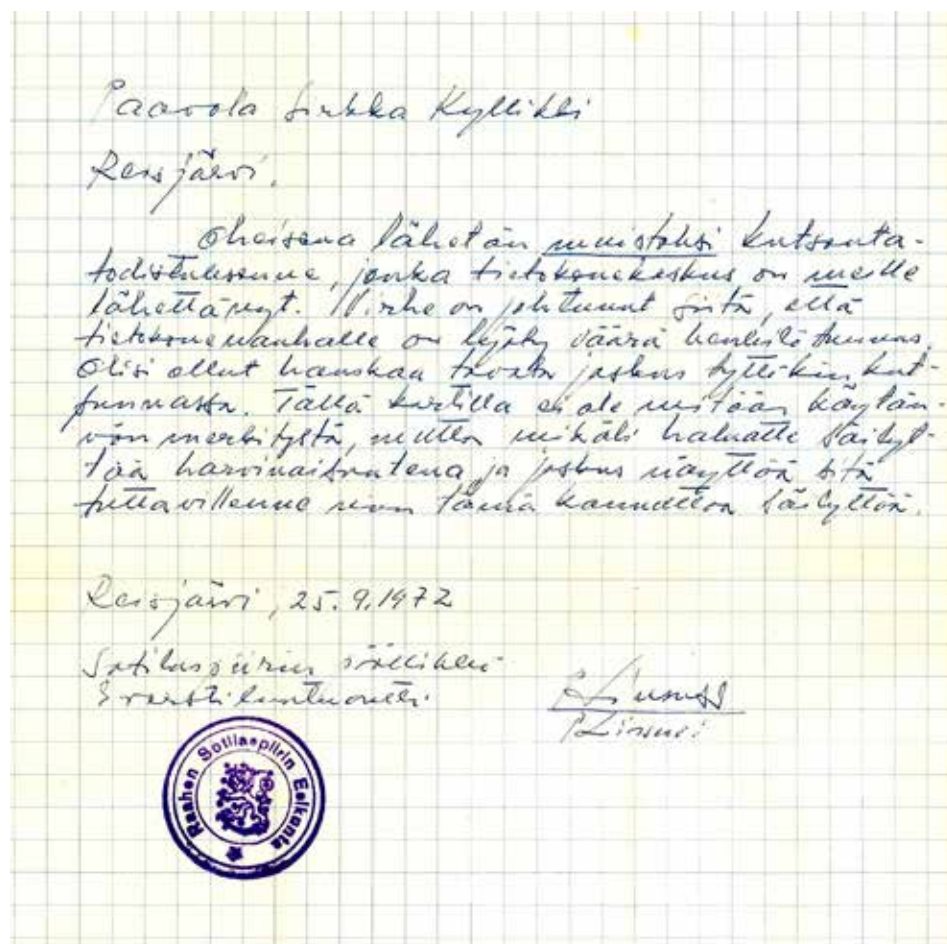 Paavola Sirkka Kyllikki
Reisjärvi.
Oheisena lähetän muistoksi kutsunta-
todistuksenne, jonka tietokonekeskus on meille
lähettänyt. Virhe on johtunut siitä, että
tietokonenauhalle on lyöty väärä henkilötunnus.
Olisi ollut hauskaa tavata joskus tyttökin kut-
sunnassa. Tällä kortilla ei ole mitään käytän-
nön merkitystä, mutta mikäli haluatte säilyt-
tää harvinaisuutena ja joskus näyttää sitä
tuttavillenne niin tämä kannattaa säilyttää.
Reisjärvi, 25.9.1972
Sotilaspiirin päällikkö
Everstiluutnantti
Raahen Sotilaspiirin Esikunta